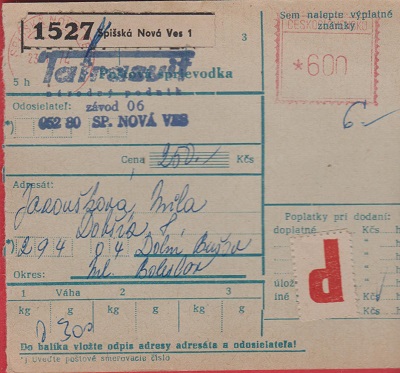 1527 Spišská Nová Ves 1
Sem nalepte výplatné
známky
3
ČESKOSLOVENSKO
*600
5 h
Tatrasvit
Poštová sprievodka
národný podnik
Odosielateľ:
závod 06
052 80 SP. NOVÁ VES
6,-
Cena 250,- Kčs
Adresát:
Janouškova Mila
294 04 Dolní
Okres: Ml. Boleslav
Poplatky pri dodaní:
doplatné Kčs h
Kčs h
P
úlož
iné
1 Váha 2
kg g kg g
Do balíka vložte odpis adresy adresáta a odosielateľa!
*) Uveďte poštové smerovacie číslo